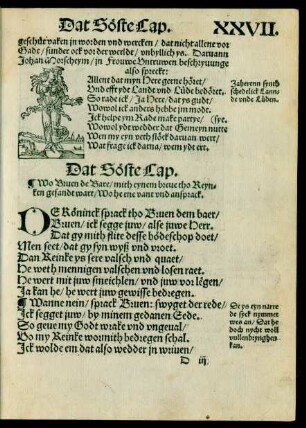 Dat Söste Cap. XXVII.
geschüt vaken jn worden vnd wercken / dat nicht allene vor
Gade / sunder ock vor der werlde / vnhyllich ys. Daruann
Johan Morscheym / jn Frouwe Vntruwen beschryuunge
also spreckt:
Allent dat myn Here gerne höret /
Vnd efft ydt Landt vnd Lüde bedöret.
So rade ick / Ja Here / dat ys gudt /
Wowol ick anders hebbe jm modt.
Ick helpe ym Rade make partye /
Wowol ydt wedder dat Gemeyn nutte sye.
Wen my eyn veth flöck daruan wert /
Wat frage ick darna / wem ydt ert.
Jaherenn synth
schedelick Lann-
de vnde Lüden.
Dat Söste Cap.
¶ Wo Bruen de Bare / mith eynem breue tho Reyn-
ken gesandt wart / Wo he ene vant vnd ansprack.
DE Könninck sprack tho Bruen dem baer /
Bruen / ick segge juw / alse juwe Herr.
Dat gy mith flite desse bödeschop doet /
Men seet / dat gy syn wyß vnd woet.
Dan Reinke ys sere valsch vnd quaet /
He weth mennigen valschen vnd losen raet.
He wert mit juw smeichlen / vnd juw vor lëgen /
Ja kan he / he wert juw gewisse bedregen.
¶ Wanne nein / sprack Bruen: swyget der rede /
Ick segget juw / by minem gedanen Eede.
So geue my Godt wrake vnd vngeual /
Bo my Reinke wormith bedregen schal.
Ick wolde em dat also wedder jn wriuen /
De ys eyn narre
de syck rymmet
wes an / Dat he
doch nycht woll
vullenbryngen
kan.
D iij